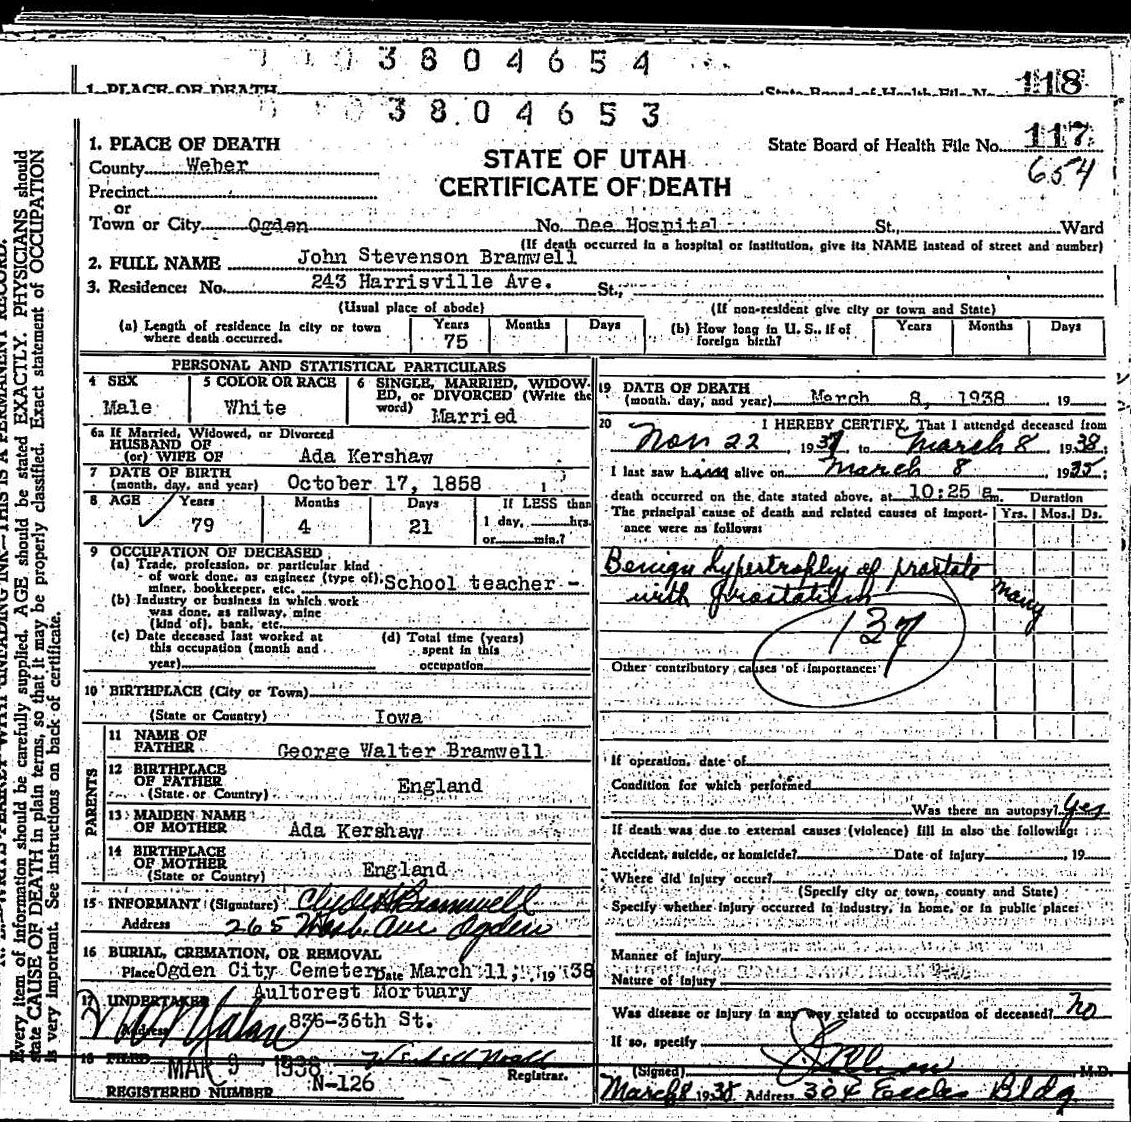 3 8 0 4 6 5 4
1. PLACE OF DEATH State Board of Health File No. 118
3 8 0 4 6 5 3
1. PLACE OF DEATH
State Board of Health File No. 117
654
County Weber
STATE OF UTAH
CERTIFICATE OF DEATH
Precinct
or
Town or City Ogden No. Dee Hospital St., Ward
(If death occurred in a hospital or institution, give its NAME instead of street and number)
2. FULL NAME John Stevenson Bramwell
3. Residence: No. 243 Harrisville Ave. St.,
(Usual place of abode) (If non-resident give city or town and State)
(a) Length of residence in city or town where death occurred. Years 75 Months Days (b) How long in U. S., if of foreign birth? Years Months Days
PERSONAL AND STATISTICAL PARTICULARS
4 SEX Male
5 COLOR OR RACE White
6 SINGLE, MARRIED, WIDOWED, or DIVORCED (Write the word) Married
6a If Married, Widowed, or Divorced
HUSBAND OF
(or) WIFE OF Ada Kershaw
7 DATE OF BIRTH
(month, day, and year) October 17, 1858 1
8 AGE Years 79 Months 4 Days 21 If LESS than 1 day, hrs. or min.?
9 OCCUPATION OF DECEASED
(a) Trade, profession, or particular kind
of work done, as engineer (type of),
miner, bookkeeper, etc. School teacher -
(b) Industry or business in which work
was done, as railway, mine
(kind of), bank, etc.
(c) Date deceased last worked at
this occupation (month and
year)
(d) Total time (years)
spent in this
occupation
10 BIRTHPLACE (City or Town)
(State or Country) Iowa
PARENTS
11 NAME OF
FATHER George Walter Bramwell
12 BIRTHPLACE
OF FATHER
(State or Country) England
13 MAIDEN NAME
OF MOTHER Ada Kershaw
14 BIRTHPLACE
OF MOTHER
(State or Country) England
15 INFORMANT (Signature) Clyde Bramwell
Address 265 Wash. Ave Ogden
16 BURIAL, CREMATION, OR REMOVAL
Place Ogden City Cemetery Date March 11, 19 38
17 UNDERTAKER Aultorest Mortuary
Address 836-36th St.
18 FILED MAR 9 - 1938
Registrar.
REGISTERED NUMBER N-126
19 DATE OF DEATH
(month, day, and year) March 8, 1938 19
20 I HEREBY CERTIFY, That I attended deceased from
Nov 22, 1937 to March 8 1938;
I last saw him alive on March 8 1935;
death occurred on the date stated above, at 10:25 a m. Duration
The principal cause of death and related causes of import- Yrs. Mos. Ds.
ance were as follows:
Benign hypertrophy of prostate
with prostatism many
137
Other contributory causes of importance:
If operation, date of
Condition for which performed
Was there an autopsy? Yes
If death was due to external causes (violence) fill in also the following:
Accident, suicide, or homicide? Date of injury 19
Where did injury occur?
(Specify city or town, county and State)
Specify whether injury occurred in industry, in home, or in public place:
Manner of injury
Nature of injury
Was disease or injury in any way related to occupation of deceased? No
If so, specify
(Signed) M.D.
March 8 1938 Address 304 Eccles Bldg
THIS IS A PERMANENT RECORD.
Every item of information should be carefully supplied. AGE should be stated EXACTLY. PHYSICIANS should
state CAUSE OF DEATH in plain terms, so that it may be properly classified. Exact statement of OCCUPATION
is very important. See instructions on back of certificate.